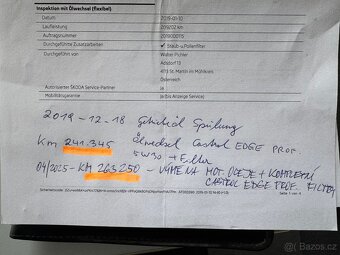 Inspektion mit Ölwechsel (flexibel)
Datum 2019-01-10
Laufleistung 209202 km
Auftragsnummer 2019000115
Durchgeführte Zusatzarbeiten ✓ Staub-u.Pollenfilter
Durchgeführt von Walter Pichler
Aisdorf 13
4113 St. Martin im Mühlkreis
Österreich
Autorisierter ŠKODA Service-Partner Ja
Mobilitätsgarantie Ja (bis Anzeige Service)
2019-12-18 Spülung
Km 241.345 Ölwechsel Castrol EDGE PROF.
5W30 + Filter
04/2025 - KM 263250 - VÝMĚNA MOT. OLEJE + KOMPLETNÍ
CASTROL EDGE PROF. FILTRY
Seite 1 von 4
Bazos.cz